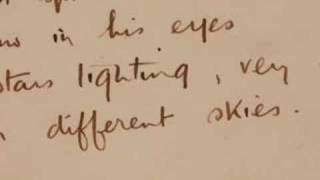 in his eyes
stars lighting, very
different skies.